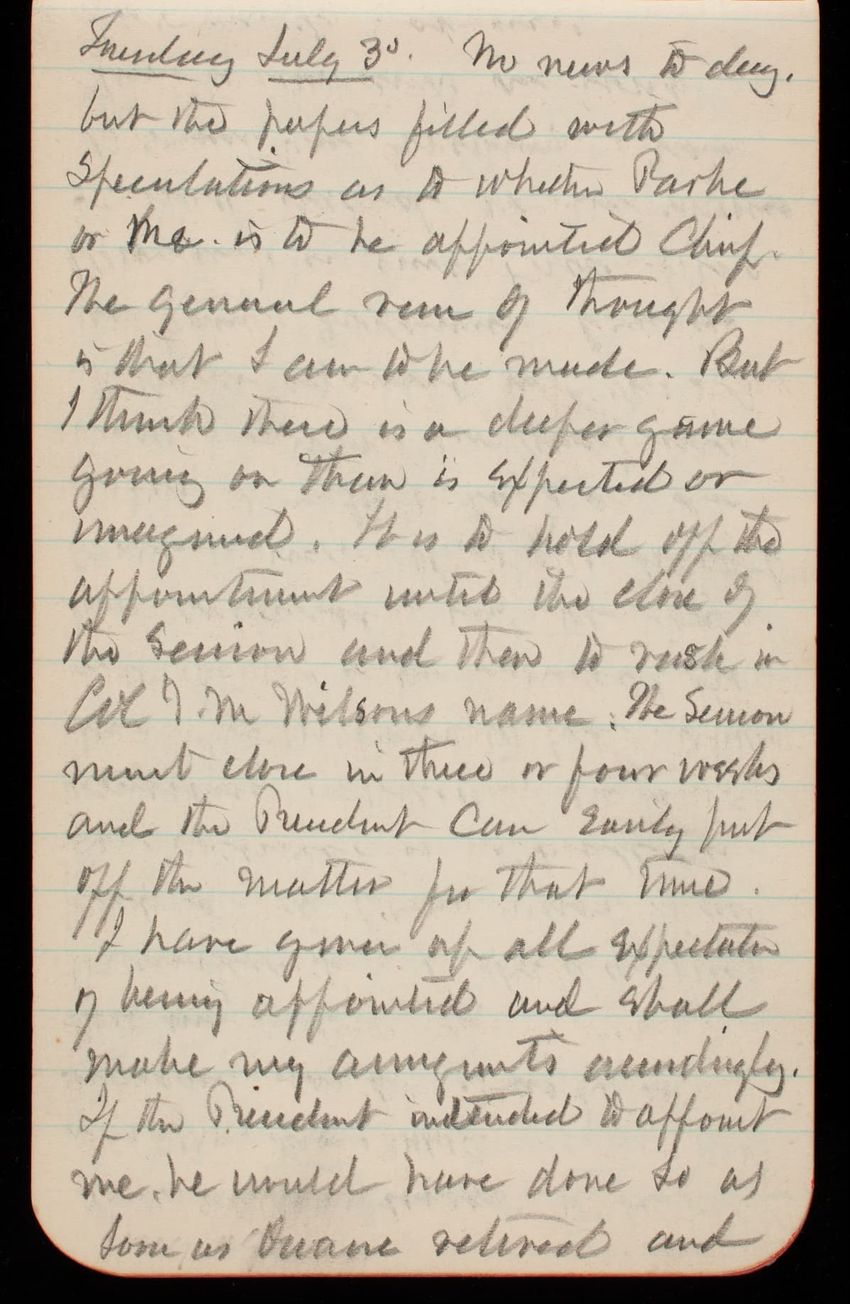 Tuesday July 3d. No news to day.
but the papers filled with
Speculations as to whether Parke
or me. is to be appointed Chief.
The general run of thought
is that I am to be made. But
I think there is a deeper game
going on than is expected or
imagined. It is to hold off the
appointment until the close of
the Session and then to rush in
Col J. M Wilsons name. The Session
must close in three or four weeks
and the President can easily put
off the matter for that time.
I have given up all expectation
of being appointed and shall
make my arrangments accordingly.
If the President intended to appoint
me. he would have done so as
soon as Duane retired and